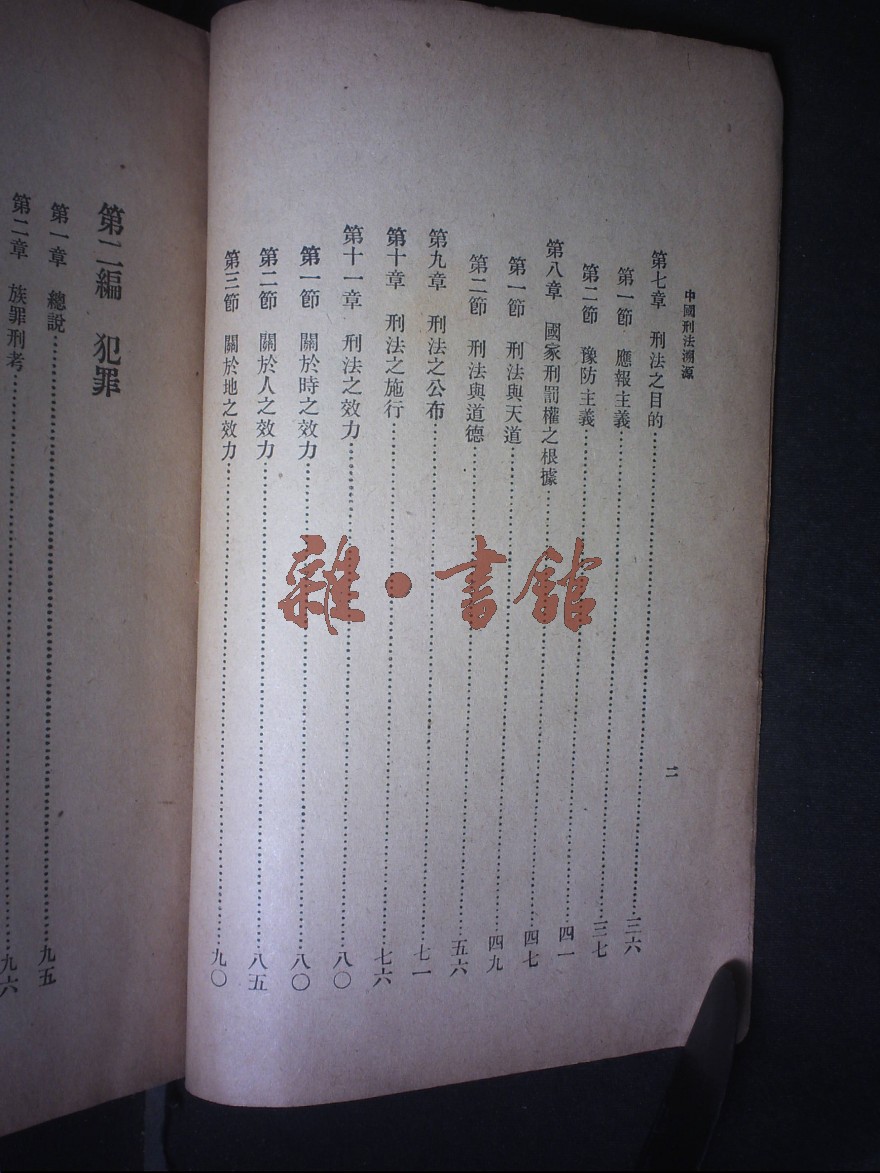 中國刑法溯源
二
第七章 刑法之目的……三六
第一節 應報主義……三七
第二節 豫防主義……四一
第八章 國家刑罰權之根據……四七
第一節 刑法與天道……四九
第二節 刑法與道德……五六
第九章 刑法之公布……七一
第十章 刑法之施行……七六
第十一章 刑法之效力……八〇
第一節 關於時之效力……八〇
第二節 關於人之效力……八五
第三節 關於地之效力……九〇
第二編 犯罪
第一章 總說……九五
第二章 族罪刑考……九六
雜·書館